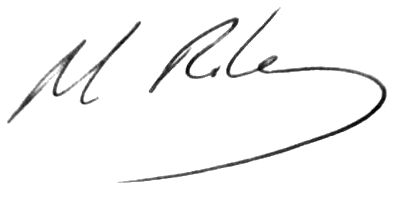 M Riley